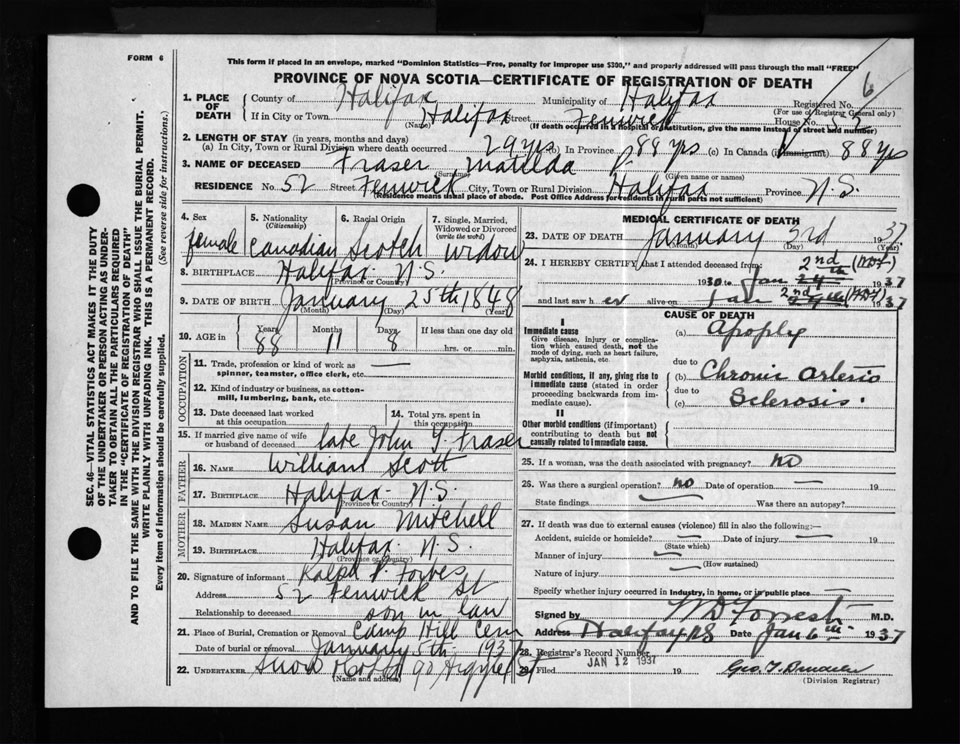 FORM 6
This form if placed in an envelope, marked "Dominion Statistics—Free, penalty for improper use $300," and properly addressed will pass through the mail "FREE"
PROVINCE OF NOVA SCOTIA—CERTIFICATE OF REGISTRATION OF DEATH
SEC. 46—VITAL STATISTICS ACT MAKES IT THE DUTY
OF THE UNDERTAKER OR PERSON ACTING AS UNDER-
TAKER TO OBTAIN ALL THE PARTICULARS REQUIRED
IN THE "CERTIFICATE OF REGISTRATION OF DEATH"
AND TO FILE THE SAME WITH THE DIVISION REGISTRAR WHO SHALL ISSUE THE BURIAL PERMIT.
WRITE PLAINLY WITH UNFADING INK. THIS IS A PERMANENT RECORD.
Every item of information should be carefully supplied. (See reverse side for instructions.)
1. PLACE OF DEATH County of Halifax Municipality of Halifax Registered No. 6
(For use of Registrar General only)
If in City or Town Halifax Street Fenwick House No. 52
(Name) (If death occurred in a hospital or institution, give the name instead of street and number)
2. LENGTH OF STAY (in years, months and days)
(a) In City, Town or Rural Division where death occurred 29 yrs (b) In Province 88 yrs (c) In Canada (if immigrant) 88 yrs
3. NAME OF DECEASED Fraser Matilda P.
(Surname) (Given name or names)
RESIDENCE No. 52 Street Fenwick City, Town or Rural Division Halifax Province N.S.
(Residence means usual place of abode. Post Office Address for residents in rural parts not sufficient)
4. Sex 5. Nationality 6. Racial Origin 7. Single, Married, Widowed or Divorced
(Citizenship) (write the word)
female Canadian Scotch Widow
8. BIRTHPLACE Halifax N.S.
(Province or Country)
9. DATE OF BIRTH January 25th 1848
(Month) (Day) (Year)
10. AGE in Years Months Days If less than one day old
88 11 8 hrs. or min.
OCCUPATION
11. Trade, profession or kind of work as spinner, teamster, office clerk, etc. —
12. Kind of industry or business, as cotton-mill, lumbering, bank, etc.
13. Date deceased last worked at this occupation
14. Total yrs. spent in this occupation
15. If married give name of wife or husband of deceased late John Y. Fraser
FATHER
16. NAME William Scott
17. BIRTHPLACE Halifax N.S.
(Province or Country)
MOTHER
18. MAIDEN NAME Susan Mitchell
19. BIRTHPLACE Halifax N.S.
(Province or Country)
20. Signature of informant Ralph V. Forbes
Address 52 Fenwick St
Relationship to deceased son in law
21. Place of Burial, Cremation or Removal Camp Hill Cem
Date of burial or removal January 5th 1937
22. UNDERTAKER Snow 90 Argyle St
(Name and address)
MEDICAL CERTIFICATE OF DEATH
23. DATE OF DEATH January 3rd 1937
(Month) (Day) (Year)
24. I HEREBY CERTIFY that I attended deceased from
1930 to Jan 2nd 1937
and last saw her alive on Jan 2nd 1937
CAUSE OF DEATH
I
Immediate cause
Give disease, injury or complication which caused death, not the mode of dying, such as heart failure, asphyxia, asthenia, etc.
(a) Apoplexy
due to
Morbid conditions, if any, giving rise to immediate cause (stated in order proceeding backwards from immediate cause).
(b) Chronic Arterio
due to
(c) Sclerosis.
II
Other morbid conditions (if important) contributing to death but not causally related to immediate cause.
25. If a woman, was the death associated with pregnancy? no
26. Was there a surgical operation? no Date of operation — 19
State findings Was there an autopsy?
27. If death was due to external causes (violence) fill in also the following:—
Accident, suicide or homicide? — Date of injury — 19
(State which)
Manner of injury —
(How sustained)
Nature of injury —
Specify whether injury occurred in industry, in home, or in public place
Signed by W D Forrest M.D.
Address Halifax N.S Date Jan 6th 1937
28. Registrar's Record Number
29. Filed JAN 12 1937 19
(Division Registrar)